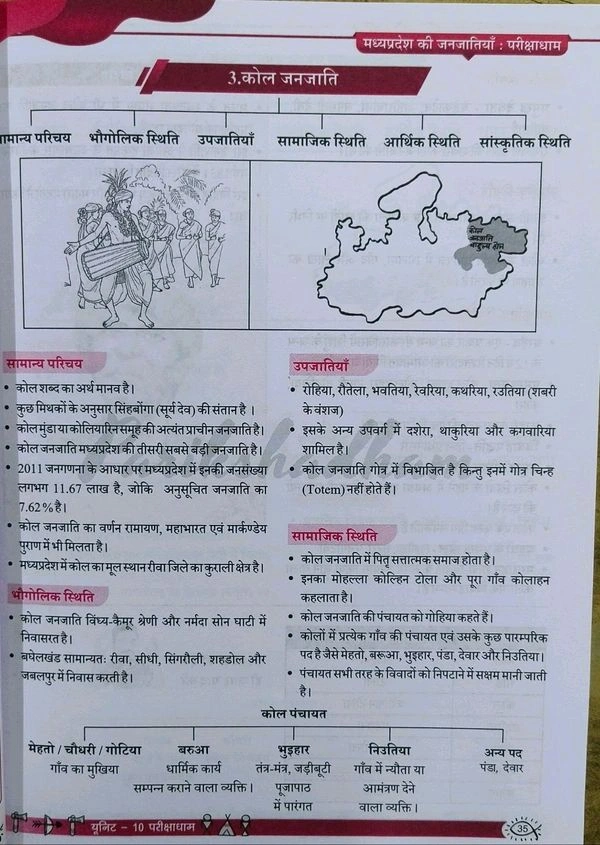 मध्यप्रदेश की जनजातियाँ : परीक्षाधाम
3.कोल जनजाति
ामान्य परिचय भौगोलिक स्थिति उपजातियाँ सामाजिक स्थिति आर्थिक स्थिति सांस्कृतिक स्थिति
कोल
जनजाति
बाहुल्य क्षेत्र
सामान्य परिचय
• कोल शब्द का अर्थ मानव है।
• कुछ मिथकों के अनुसार सिंहबोंगा (सूर्य देव) की संतान है ।
• कोल मुंडा या कोलियारिन समूह की अत्यंत प्राचीन जनजाति है।
• कोल जनजाति मध्यप्रदेश की तीसरी सबसे बड़ी जनजाति है।
• 2011 जनगणना के आधार पर मध्यप्रदेश में इनकी जनसंख्या
लगभग 11.67 लाख है, जोकि अनुसूचित जनजाति का
7.62% है।
• कोल जनजाति का वर्णन रामायण, महाभारत एवं मार्कण्डेय
पुराण में भी मिलता है।
• मध्यप्रदेश में कोल का मूल स्थान रीवा जिले का कुराली क्षेत्र है।
भौगोलिक स्थिति
• कोल जनजाति विंध्य-कैमूर श्रेणी और नर्मदा सोन घाटी में
निवासरत है।
• बघेलखंड सामान्यतः रीवा, सीधी, सिंगरौली, शहडोल और
जबलपुर में निवास करती है।
उपजातियाँ
• रोहिया, रौतेला, भवतिया, रेवरिया, कथरिया, रउतिया (शबरी
के वंशज)
• इसके अन्य उपवर्ग में दशेरा, ठाकुरिया और कगवारिया
शामिल है।
• कोल जनजाति गोत्र में विभाजित है किन्तु इनमें गोत्र चिन्ह
(Totem) नहीं होते हैं।
सामाजिक स्थिति
• कोल जनजाति में पितृ सत्तात्मक समाज होता है।
• इनका मोहल्ला कोल्हिन टोला और पूरा गाँव कोलाहन
कहलाता है।
• कोल जनजाति की पंचायत को गोहिया कहते हैं।
• कोलों में प्रत्येक गाँव की पंचायत एवं उसके कुछ पारम्परिक
पद है जैसे मेहतो, बरूआ, भुइहार, पंडा, देवार और निउतिया।
• पंचायत सभी तरह के विवादों को निपटाने में सक्षम मानी जाती
है।
Parikshadham
कोल पंचायत
मेहतो / चौधरी / गोटिया बरुआ भुइहार निउतिया अन्य पद
गाँव का मुखिया धार्मिक कार्य तंत्र-मंत्र, जड़ीबूटी गाँव में न्यौता या पंडा, देवार
सम्पन्न कराने वाला व्यक्ति । पूजापाठ आमंत्रण देने
में पारंगत वाला व्यक्ति ।
यूनिट – 10 परीक्षाधाम
35